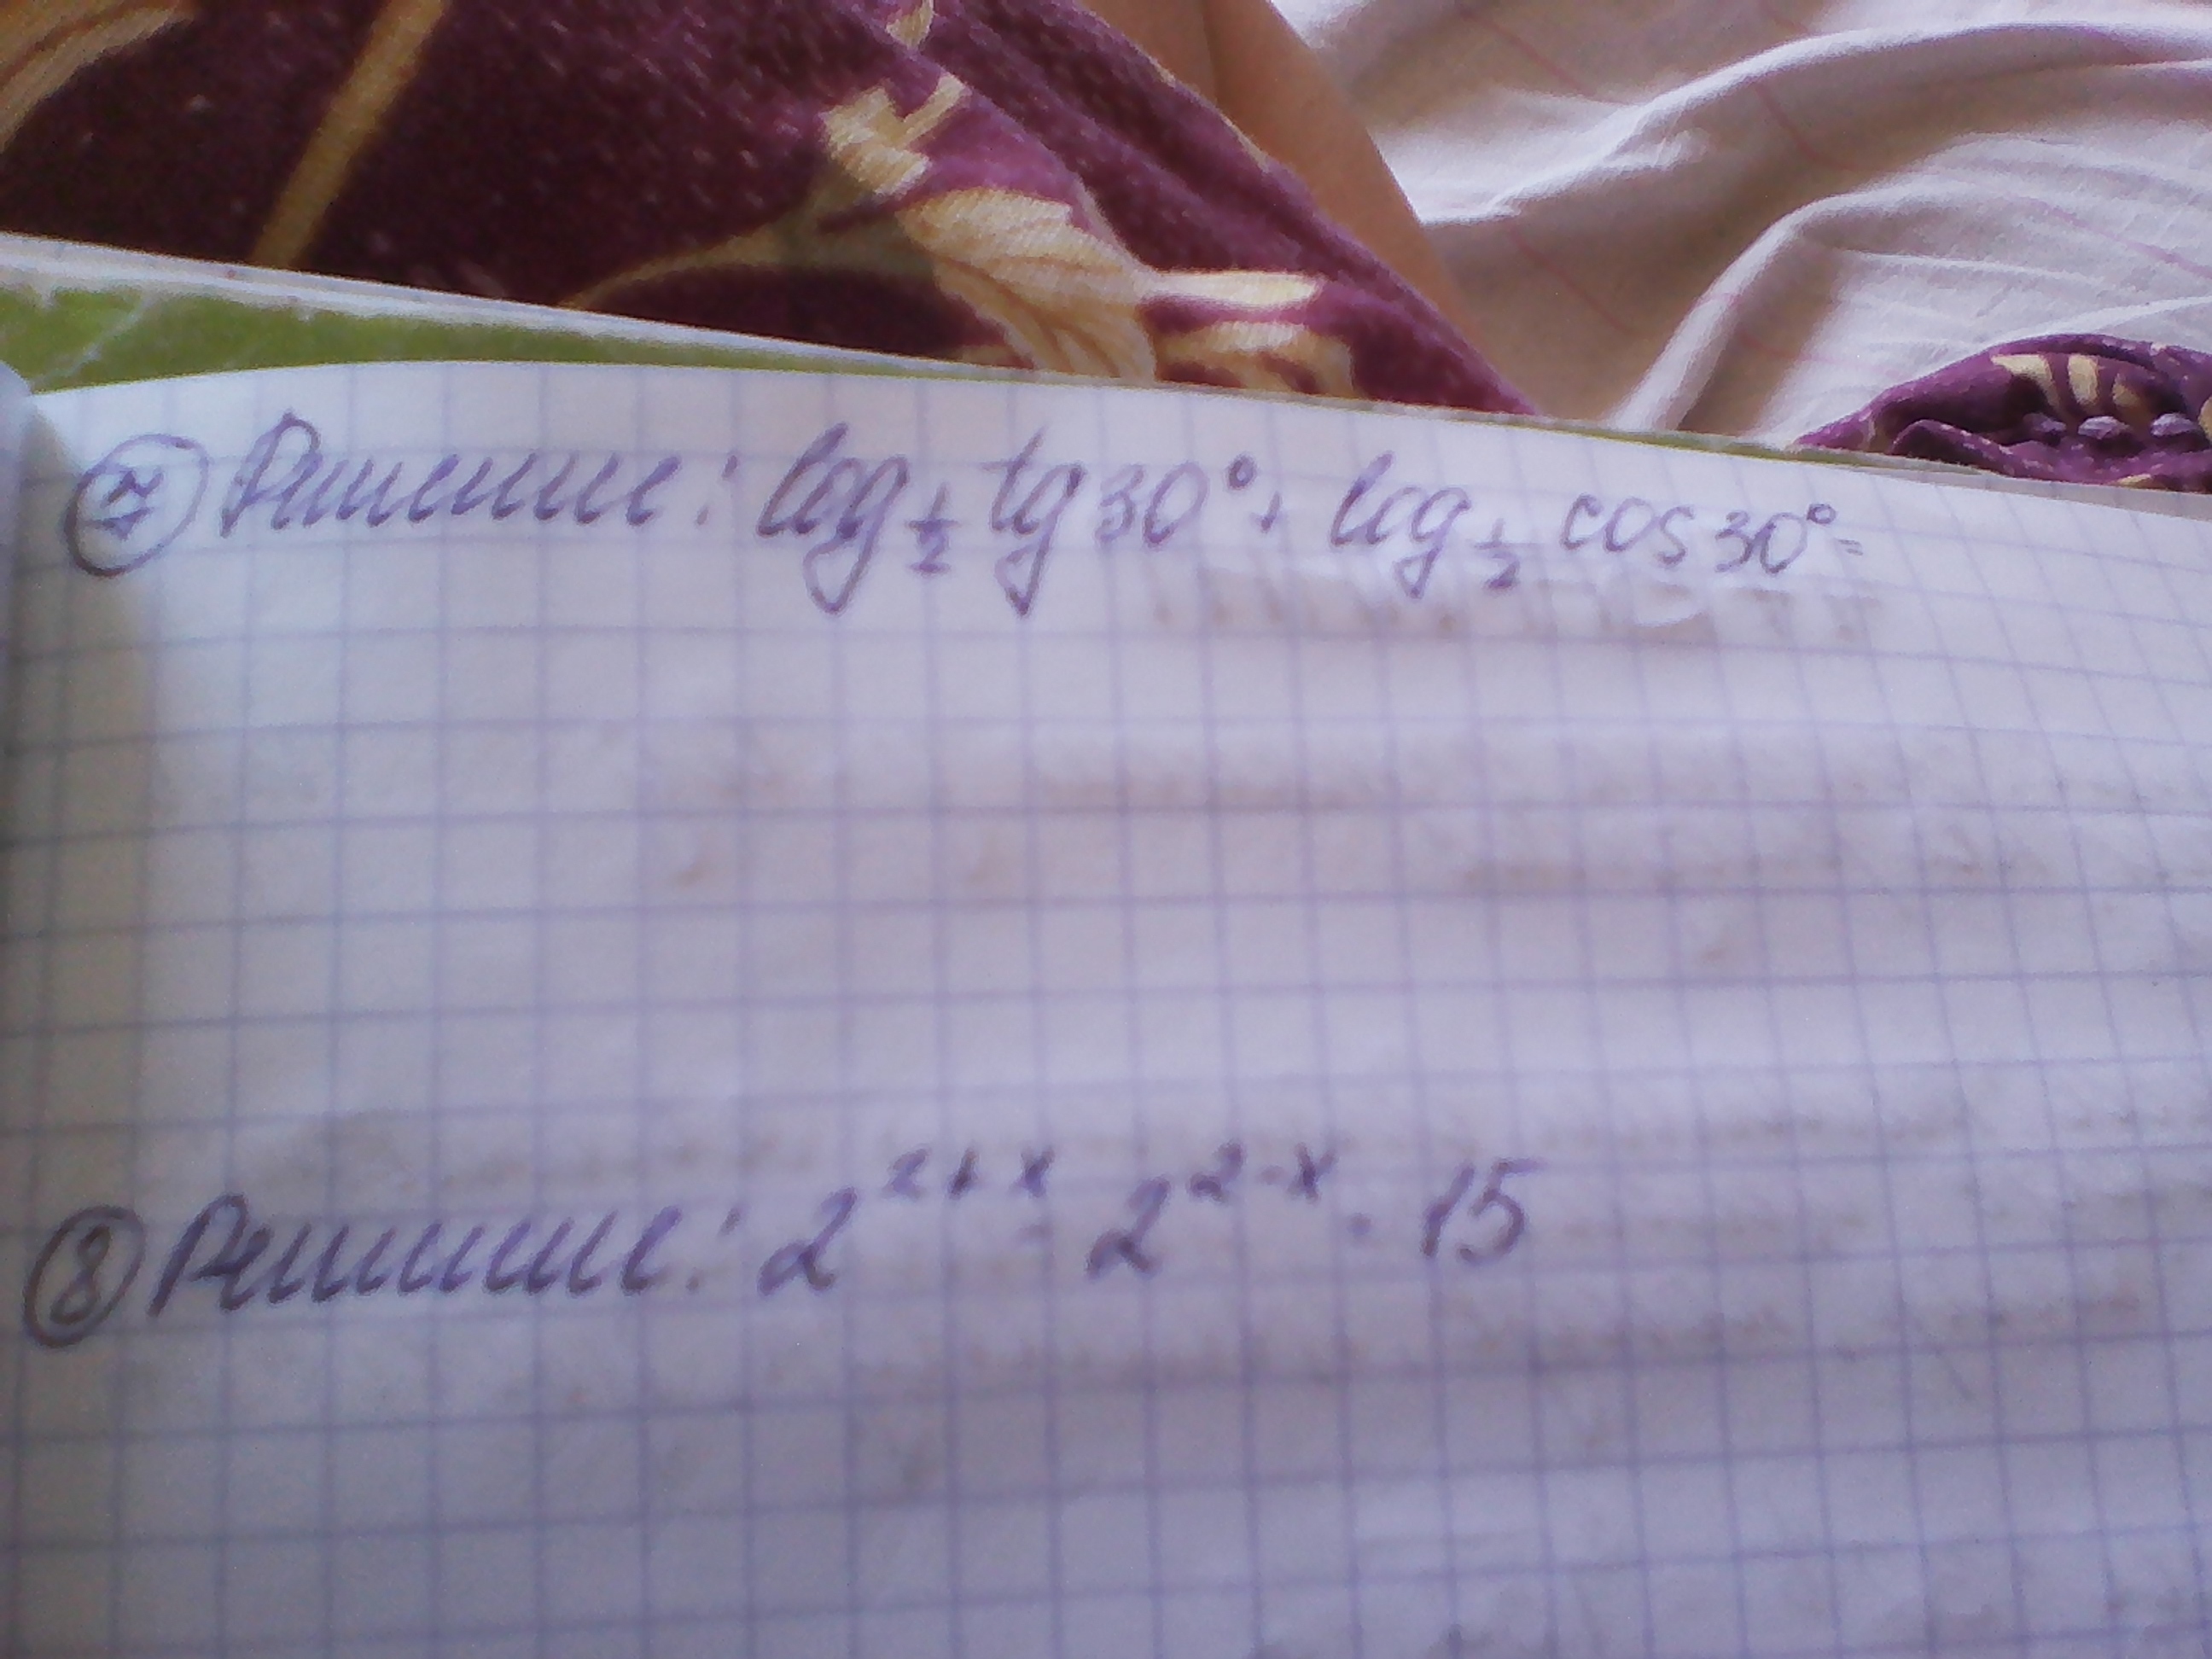 ⑦ Решение: log½ tg30° + log½ cos30° =
⑧ Решение: 2²⁺ˣ - 2²⁻ˣ = 15